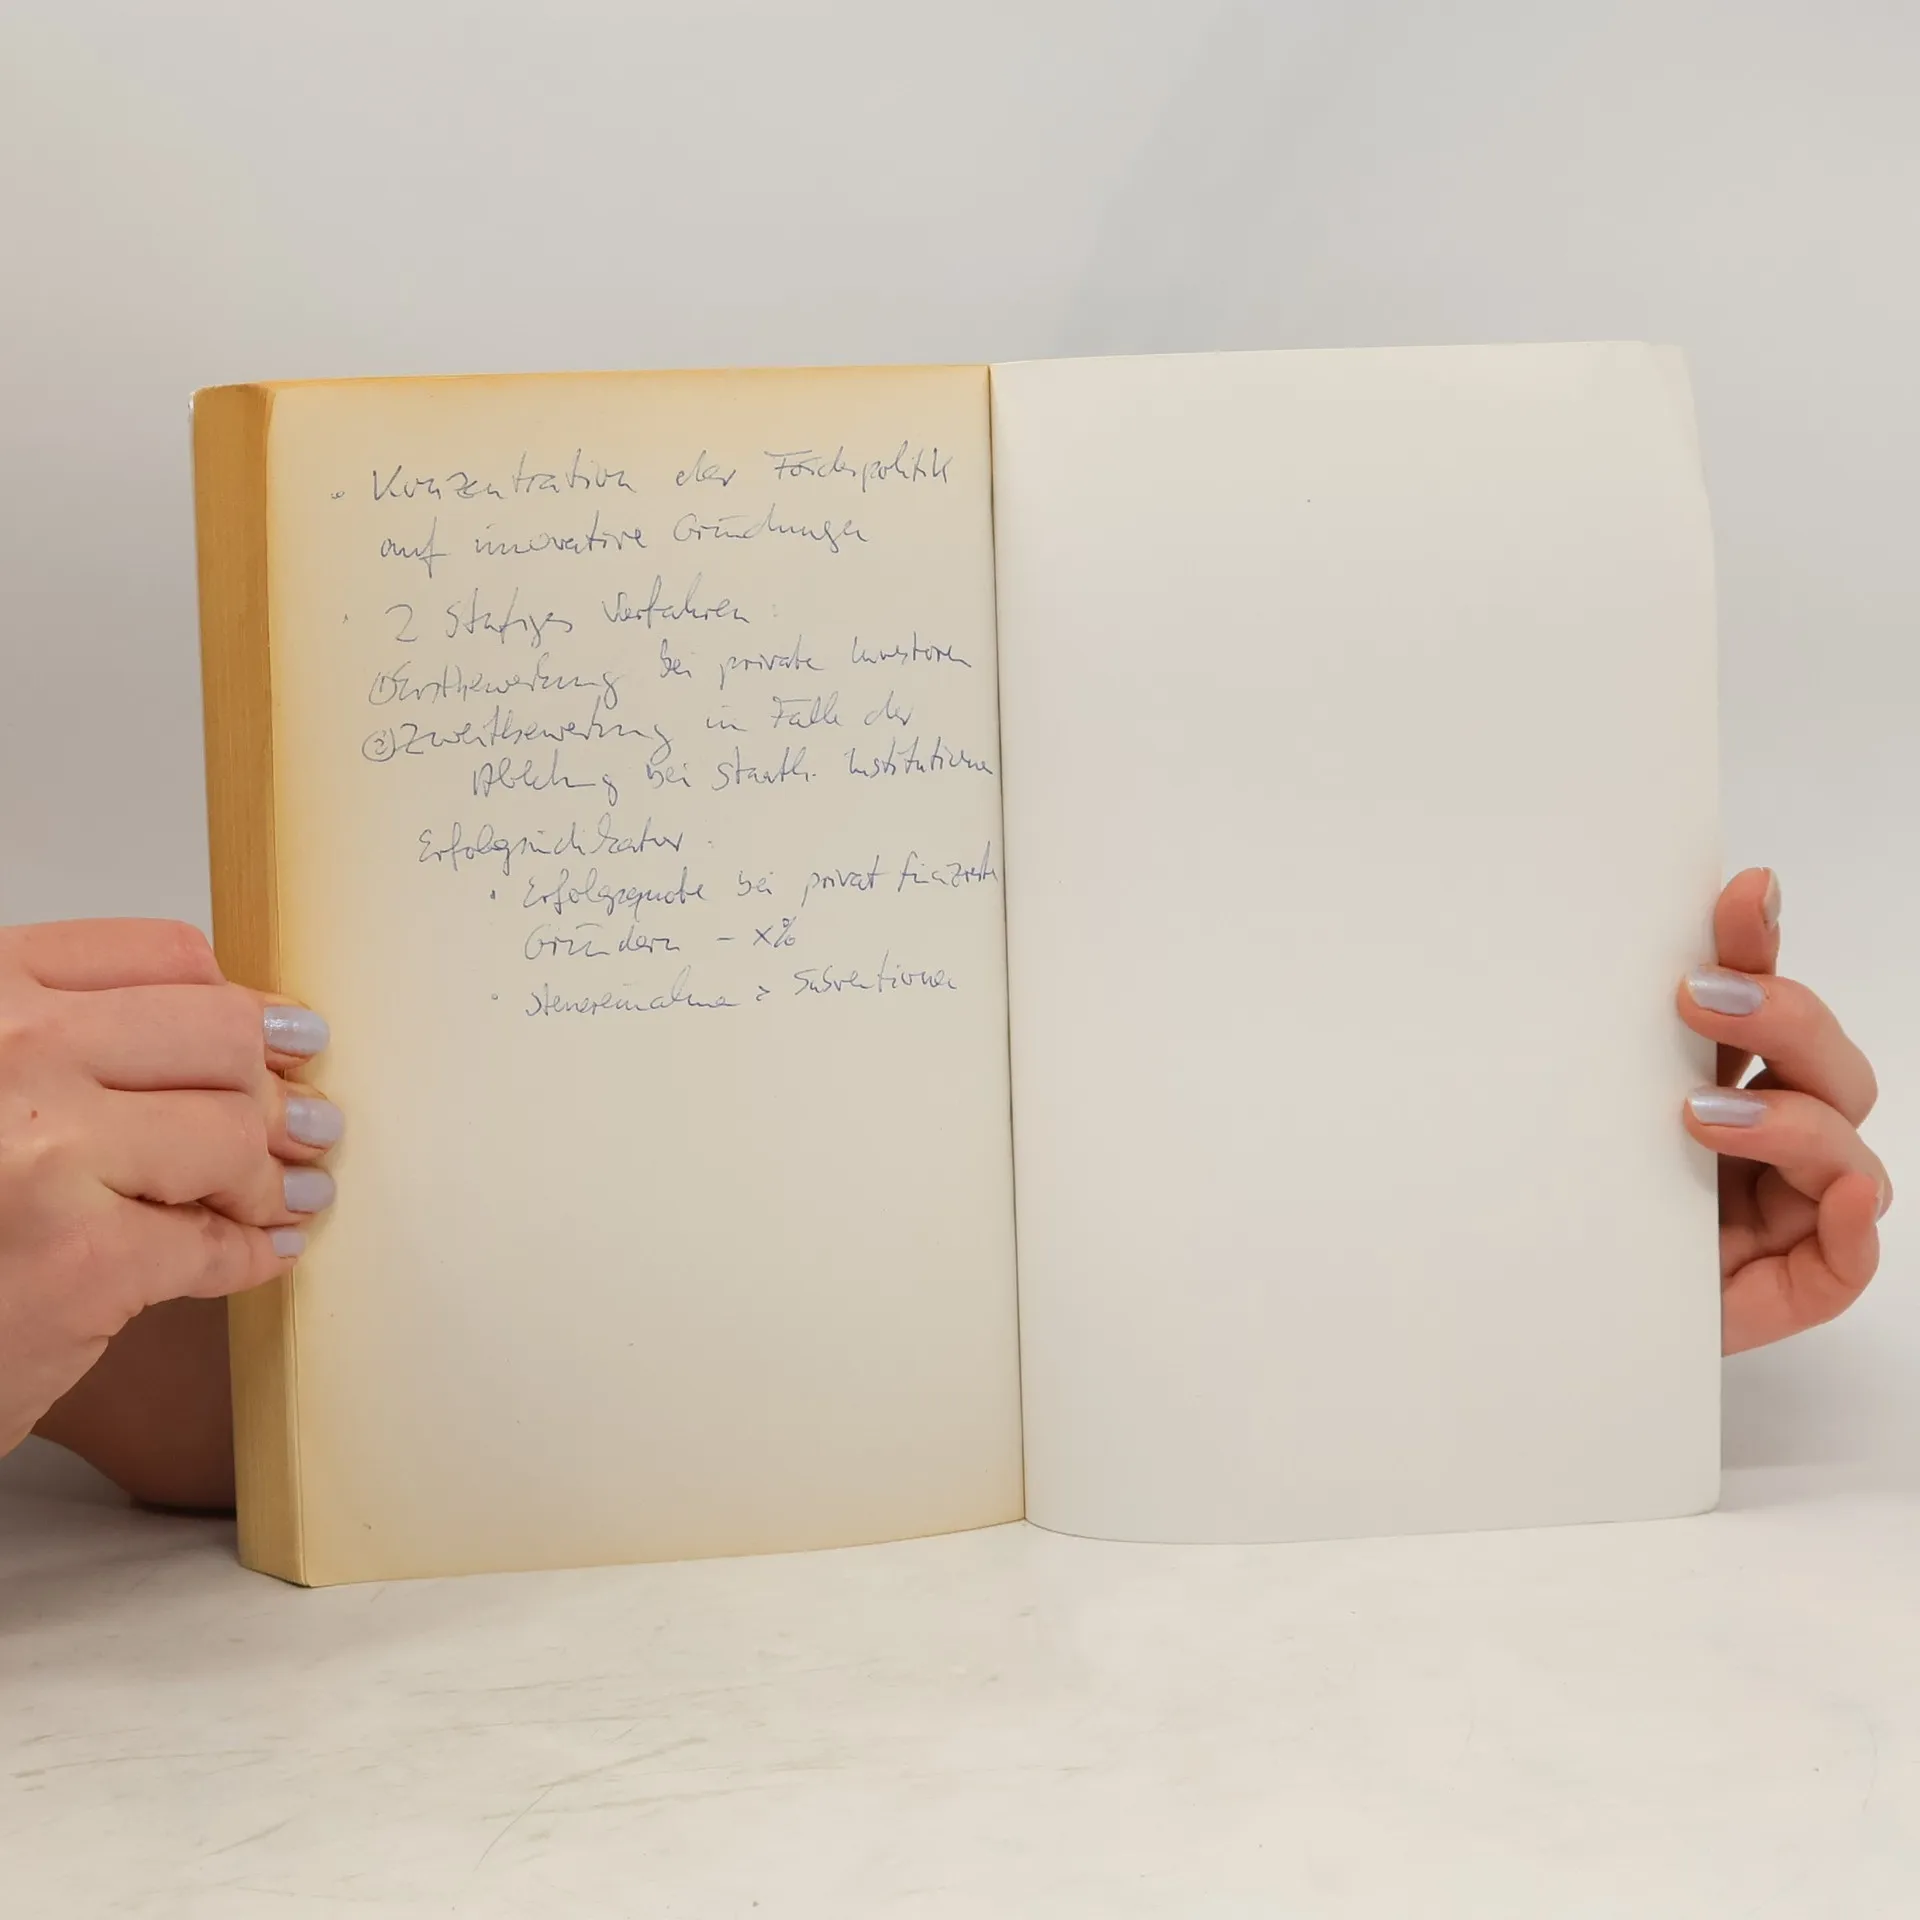 • Konzentration der Förderpolitik
auf innovative Gründungen
• 2 Stufiges Verfahren:
① Erstbewerbung bei private Investoren
② Zweitbewerbung im Falle der
Ablehnung bei staatl. Institutionen
Erfolgsindikator:
• Erfolgsquote bei privat finanzierte
Gründern - x%
• Steuereinnahme > Subventionen